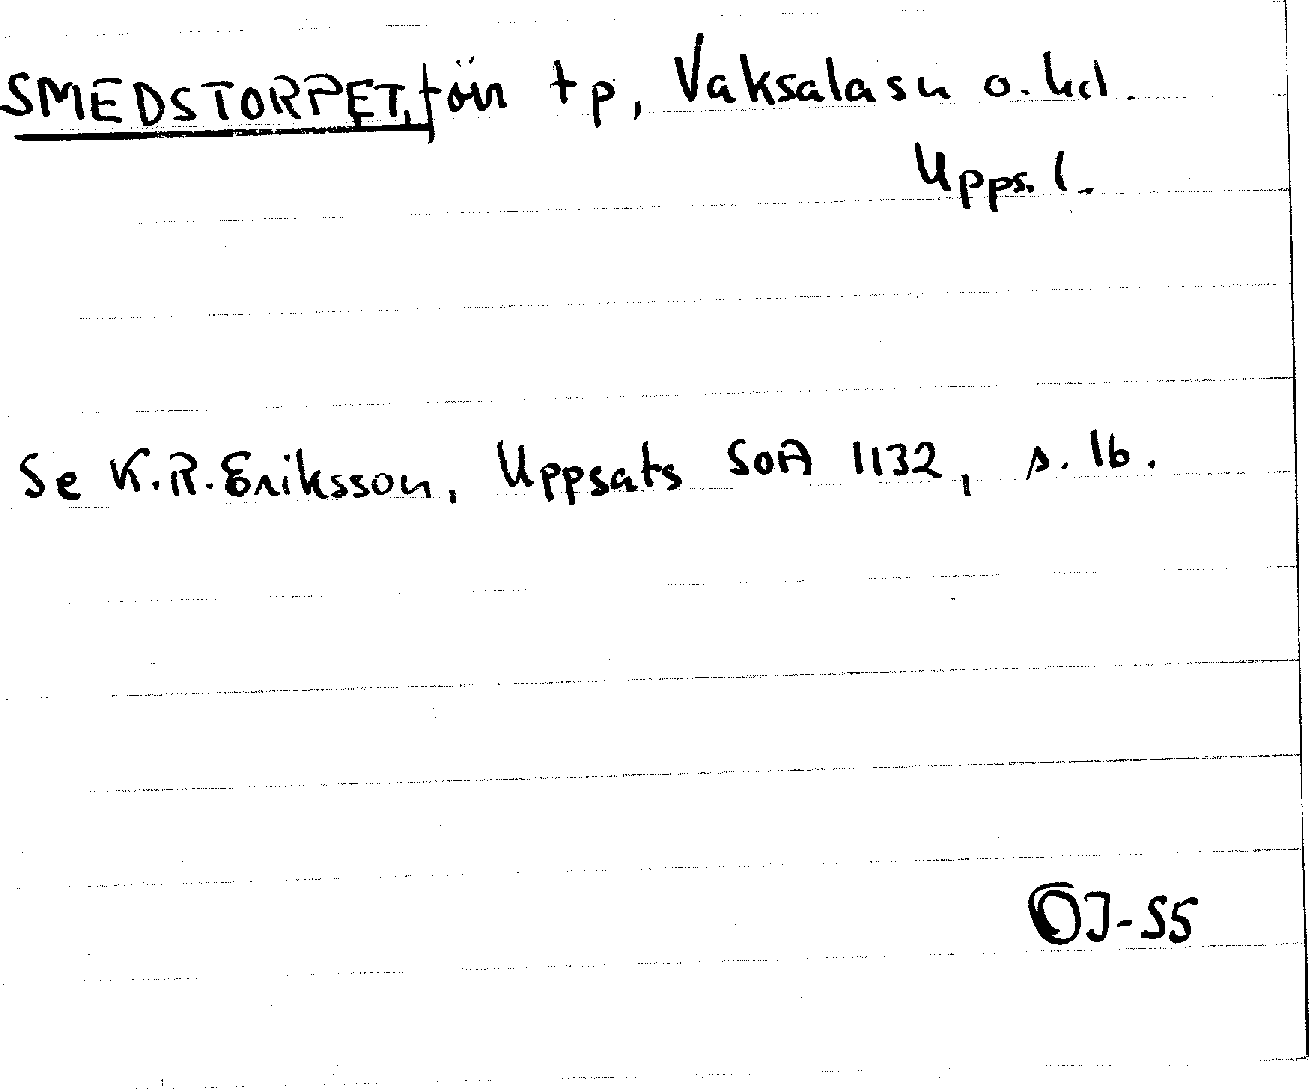 SMEDSTORPET, förr tp, Vaksala sn o. hd.
Upps. l.
Se K.R. Eriksson, Uppsats SOA 1132, s. 16.
OJ-55